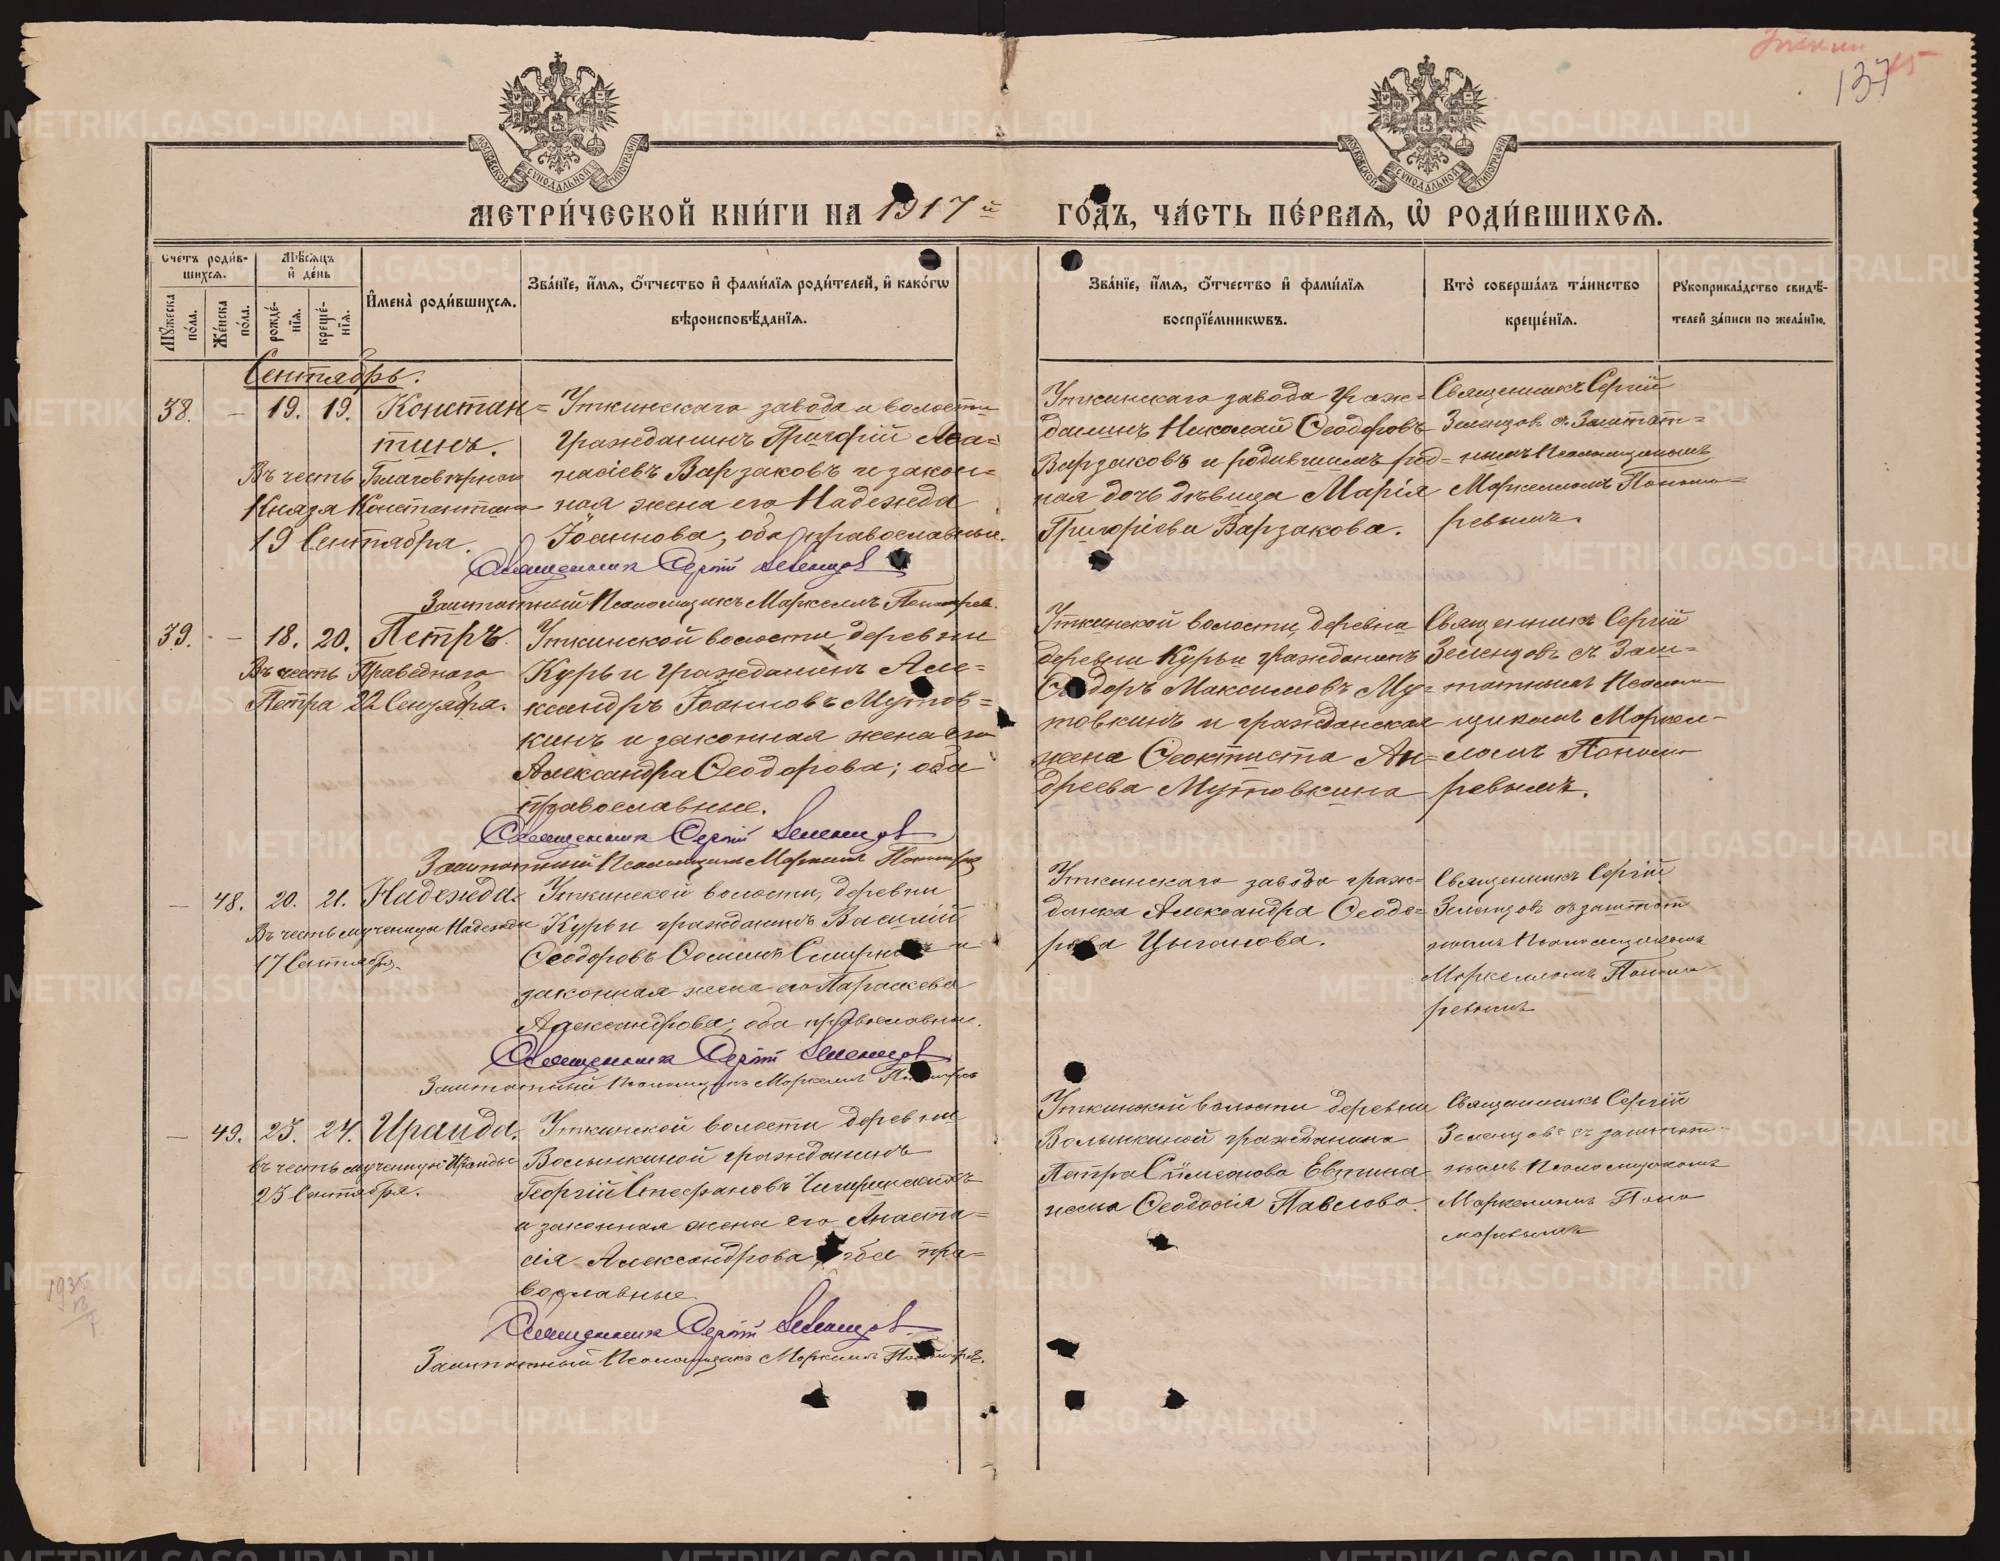 137
МЕТРИ́ЧЕСКОЙ КНИ́ГИ НА 1917 й ГО́ДЪ, ЧА́СТЬ ПЕ́РВАЯ, Ѡ РОДИ́ВШИХСЯ.
Счетъ роди́в-
шихся.
Мѣ́сяцъ
и де́нь
Мꙋ́жеска по́ла.
Же́нска по́ла.
рожде́-
нїя.
креще́-
нїя.
И҆мена̀ роди́вшихся.
Зва́нїе, и҆́мя, ѻ҆́тчество и҆ фами́лїя роди́телей, и҆ како́гѡ
вѣроисповѣ́данїя.
Зва́нїе, и҆́мя, ѻ҆́тчество и҆ фами́лїя
воспрїе́мникѡвъ.
Кто̀ соверша́лъ та́инство
креще́нїя.
Рꙋкоприкла́дство свидѣ́-
телей за́писи по жела́нїю.
Сентябрь.
38. – 19. 19. Констан=
тинъ.
Въ честь Благовѣрнаго
Князя Константина
19 Сентября.
Уткинскаго завода и волости
гражданинъ Григорій Аѳа=
насіевъ Варзаковъ и закон=
ная жена его Надежда
Іоаннова; оба православные.
Священникъ Сергій Зеленцовъ
Заштатный Псаломщикъ Маркеллъ Пономаревъ.
Уткинскаго завода граж=
данинъ Николай Ѳеодоровъ
Варзаковъ и родившимъ род=
ная дочь дѣвица Марія
Григоріева Варзакова.
Священникъ Сергій
Зеленцовъ съ Заштат=
нымъ Псаломщикомъ
Маркелломъ Понома=
ревымъ.
39. – 18. 20. Петръ.
Въ честь Праведнаго
Петра 22 Сентября.
Уткинской волости деревни
Курьи гражданинъ Але=
ксандръ Іоанновъ Мутов=
кинъ и законная жена его
Александра Ѳеодорова; оба
православные.
Священникъ Сергій Зеленцовъ
Заштатный Псаломщикъ Маркеллъ Пономаревъ
Уткинской волости, деревни
деревни Курьи гражданинъ
Ѳеодоръ Максимовъ Му=
товкинъ и гражданская
жена Ѳеоктиста Ан=
дреева Мутовкина
Священникъ Сергій
Зеленцовъ съ Заш=
татнымъ Псалом
щикомъ Маркел=
ломъ Понома
ревымъ.
– 48. 20. 21. Надежда.
Въ честь мученицы Надежды
17 Сентября.
Уткинской волости, деревни
Курьи гражданинъ Василій
Ѳеодоровъ и
законная жена его Параскева
Александрова; оба православные.
Священникъ Сергій Зеленцовъ
Заштатный Псаломщикъ Маркеллъ Пономаревъ
Уткинскаго завода граж=
данка Александра Ѳеодо=
рова Цыганова.
Священникъ Сергій
Зеленцовъ съ заштат
нымъ Псаломщикомъ
Маркелломъ Понома
ревымъ
– 49. 23. 24. Ираида.
въ честь мученицы Ираиды
23 Сентября.
Уткинской волости деревни
Волынкиной гражданинъ
Георгій Стефановъ
и законная жена его Анаста=
сія Александрова; оба пра=
вославные
Священникъ Сергій Зеленцовъ
Заштатный Псаломщикъ Маркеллъ Пономаревъ.
Уткинской волости деревни
Волынкиной гражданина
Петра Сѵмеонова Евгина
жена Ѳеодосія Павлова.
Священникъ Сергій
Зеленцовъ съ заштат=
нымъ Псаломщикомъ
Маркелломъ Поно
маревымъ